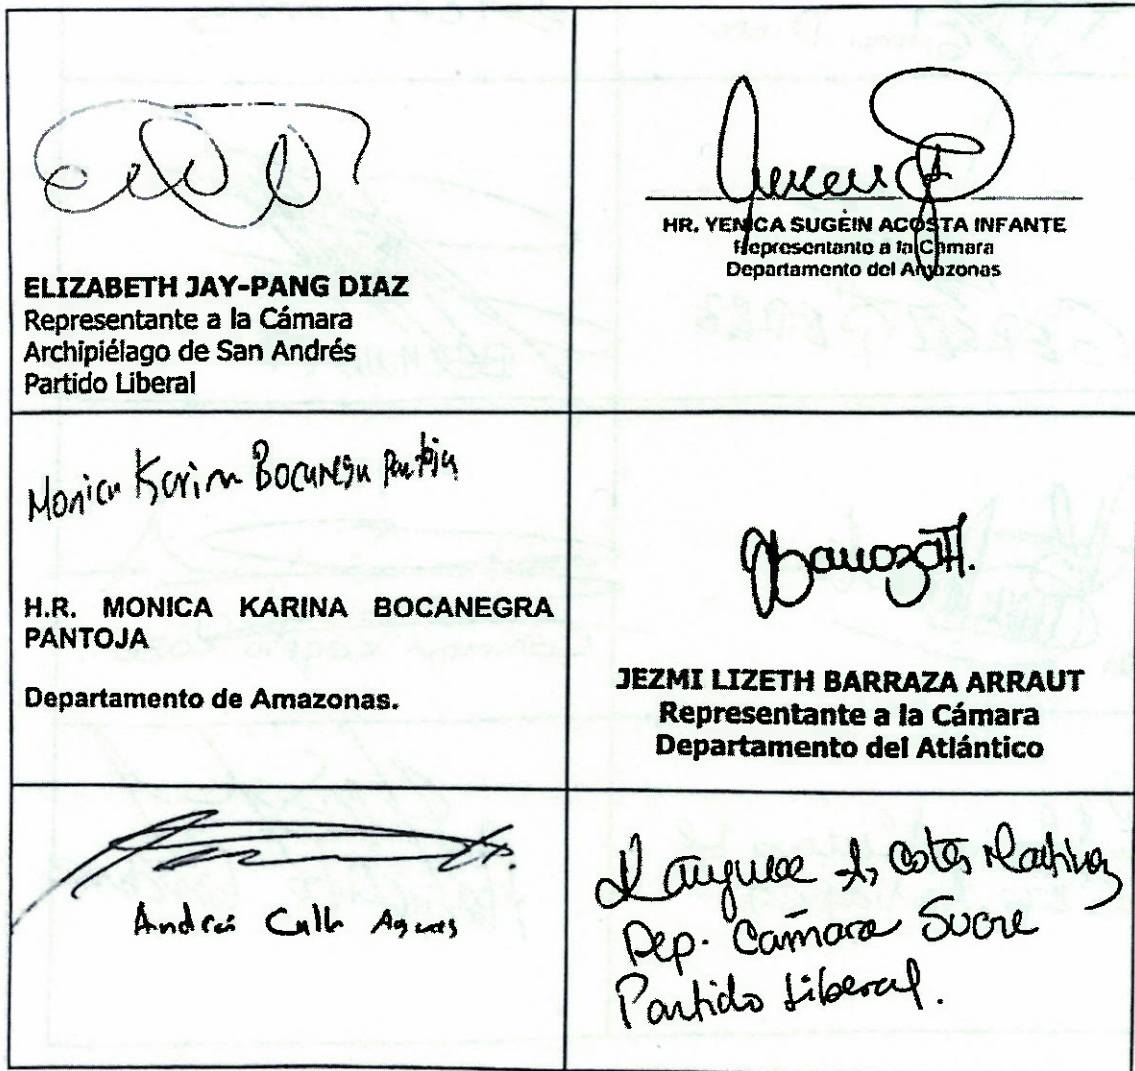 ELIZABETH JAY-PANG DIAZ
Representante a la Cámara
Archipiélago de San Andrés
Partido Liberal
HR. YENICA SUGEIN ACOSTA INFANTE
Representante a la Cámara
Departamento del Amazonas
Monica Karina Bocanegra Pantoja
H.R. MONICA KARINA BOCANEGRA
PANTOJA
Departamento de Amazonas.
JEZMI LIZETH BARRAZA ARRAUT
Representante a la Cámara
Departamento del Atlántico
Andrés Calle Aguas
Martinez
Rep. Cámara Sucre
Partido Liberal.